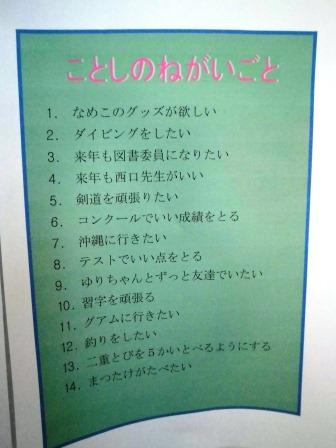 ことしのねがいごと
1. なめこのグッズが欲しい
2. ダイビングをしたい
3. 来年も図書委員になりたい
4. 来年も西口先生がいい
5. 剣道を頑張りたい
6. コンクールでいい成績をとる
7. 沖縄に行きたい
8. テストでいい点をとる
9. ゆりちゃんとずっと友達でいたい
10. 習字を頑張る
11. グアムに行きたい
12. 釣りをしたい
13. 二重とびを5かいとべるようにする
14. まつたけがたべたい